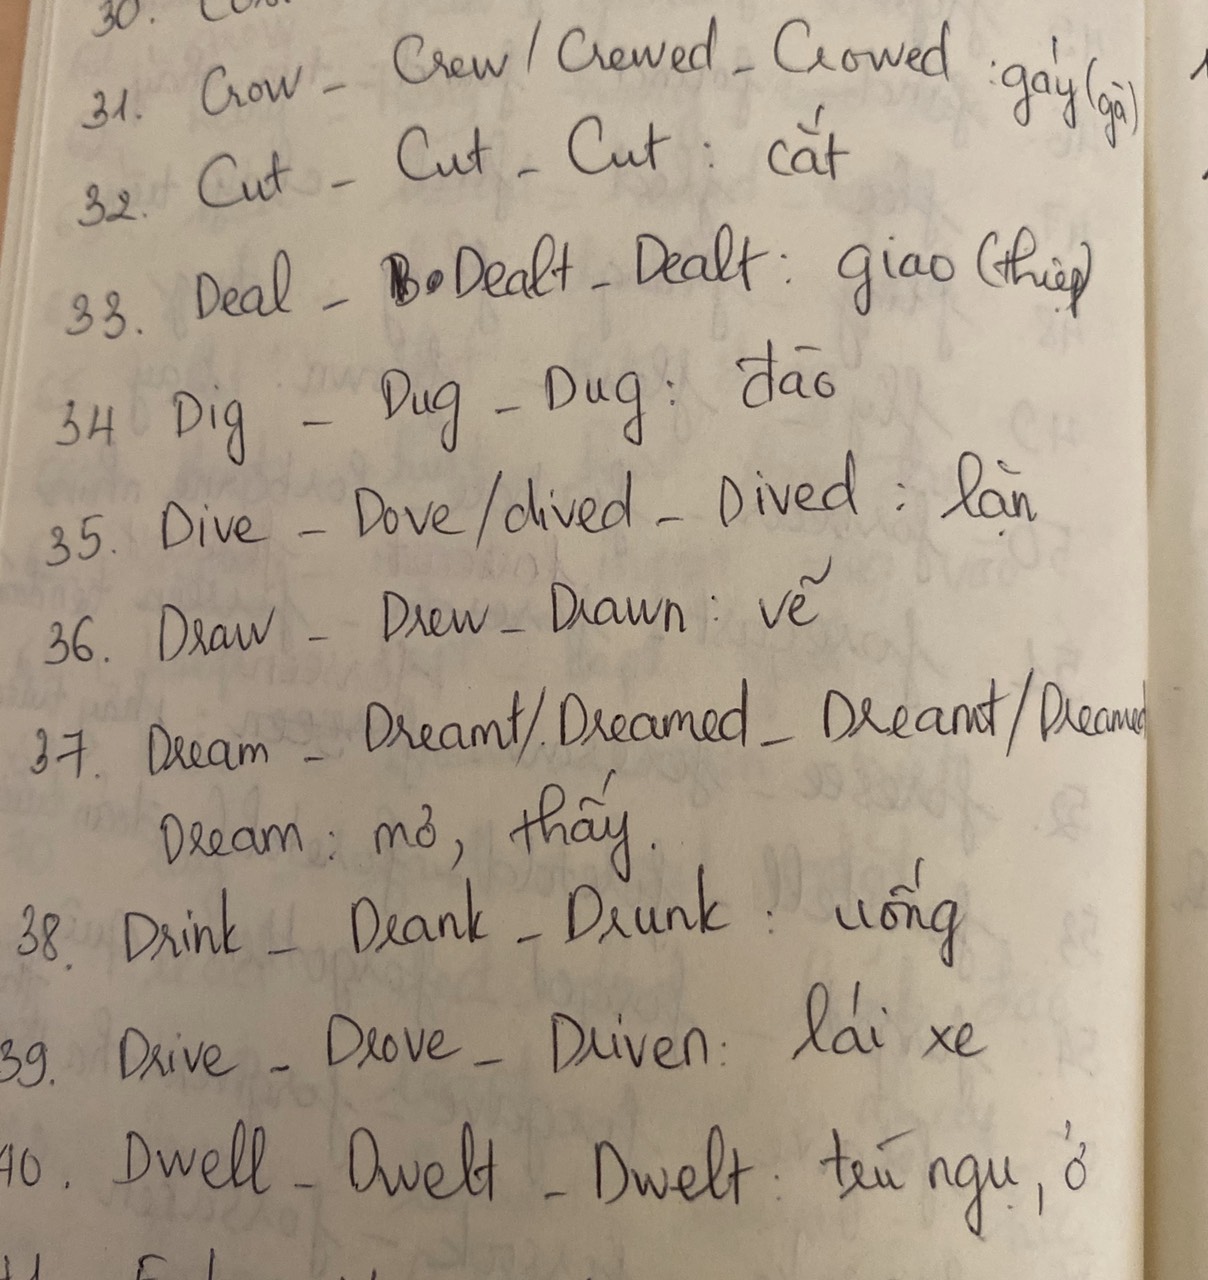 30.
31. Crow - Crew / Crewed - Crowed : gáy (gà)
32. Cut - Cut - Cut : cắt
33. Deal - Dealt - Dealt : giao (thiệp)
34 Dig - Dug - Dug : đào
35. Dive - Dove / dived - Dived : lặn
36. Draw - Drew - Drawn : vẽ
37. Dream - Dreamt / Dreamed - Dreamt / Dreamed
Dream : mơ, thấy.
38. Drink - Drank - Drunk : uống
39. Drive - Drove - Driven : lái xe
40. Dwell - Dwelt - Dwelt : trú ngụ, ở